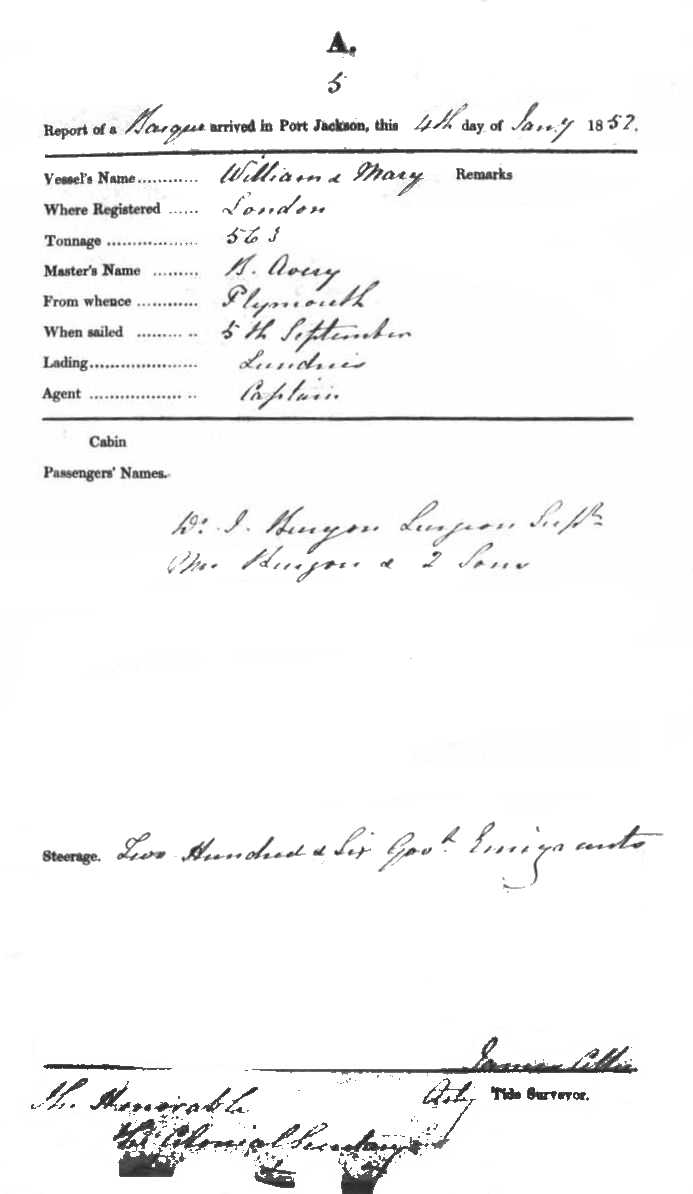 A.
5
Report of a Barque arrived in Port Jackson, this 4th day of Jany 1852.
Vessel's Name............ William & Mary Remarks
Where Registered ...... London
Tonnage .................. 563
Master's Name ......... B. Avery
From whence ............ Plymouth
When sailed ......... .. 5th September
Lading..................... Sundries
Agent .................. .. Captain
Cabin
Passengers' Names.
Dr. J. Surgeon Supt
Mrs & 2 Sons
Steerage. Two Hundred & Six Govt. Emigrants
James
Actg Tide Surveyor.
The Honorable
The Colonial Secretary